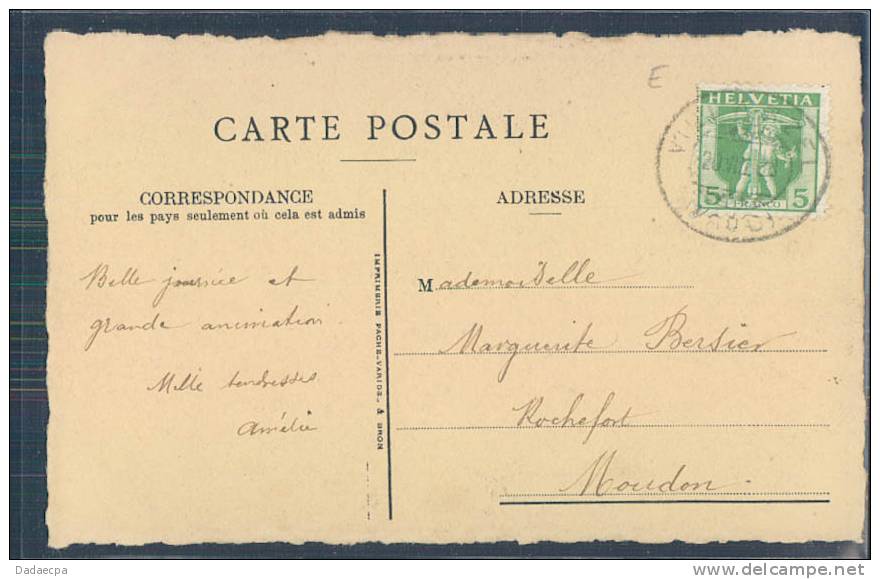 E
HELVETIA
5 5
FRANCO
CARTE POSTALE
CORRESPONDANCE
pour les pays seulement où cela est admis
Belle journée et
grande animation.
Mille tendresses
Amélie
IMPRIMERIE PACHE-VARIDEL & BRON
ADRESSE
Mademoiselle
Marguerite Bersier
Rochefort
Moudon
Dadaecpa
www.delcampe.net